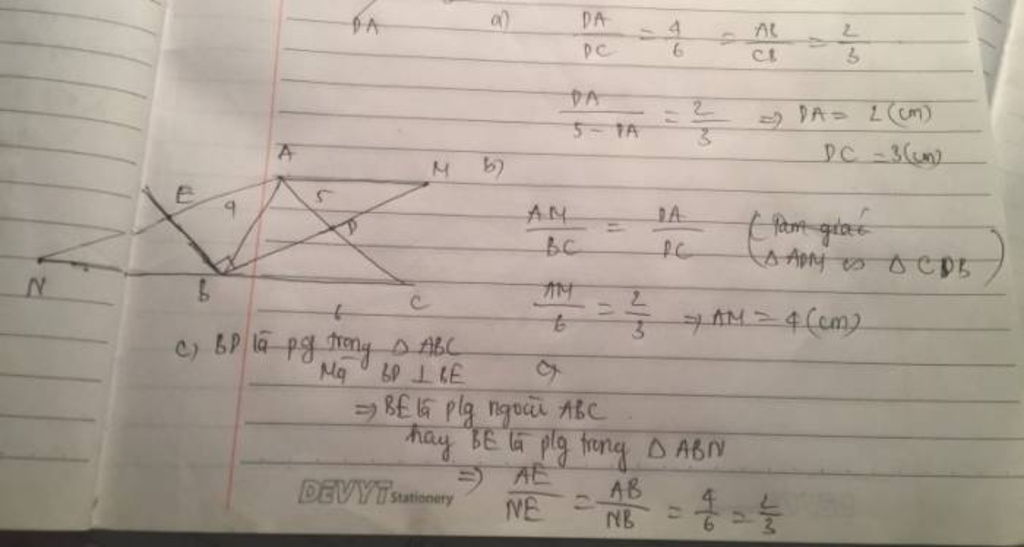 DA
a) DA/DC = 4/6 = AB/CB = 2/3
DA/5 - DA = 2/3 => DA = 2 (cm)
DC = 3 (cm)
A
M
E
4
5
D
N
B
C
6
b)
AM/BC = DA/DC (Tam giác
Δ ADM ∽ Δ CDB)
AM/6 = 2/3 => AM = 4 (cm)
c) BD là pg trong Δ ABC
Mà BD ⊥ BE
=> BE là p/g ngoài ABC
hay BE là p/g trong Δ ABN
=> AE/NE = AB/NB = 4/6 = 2/3
DEVYT Stationery